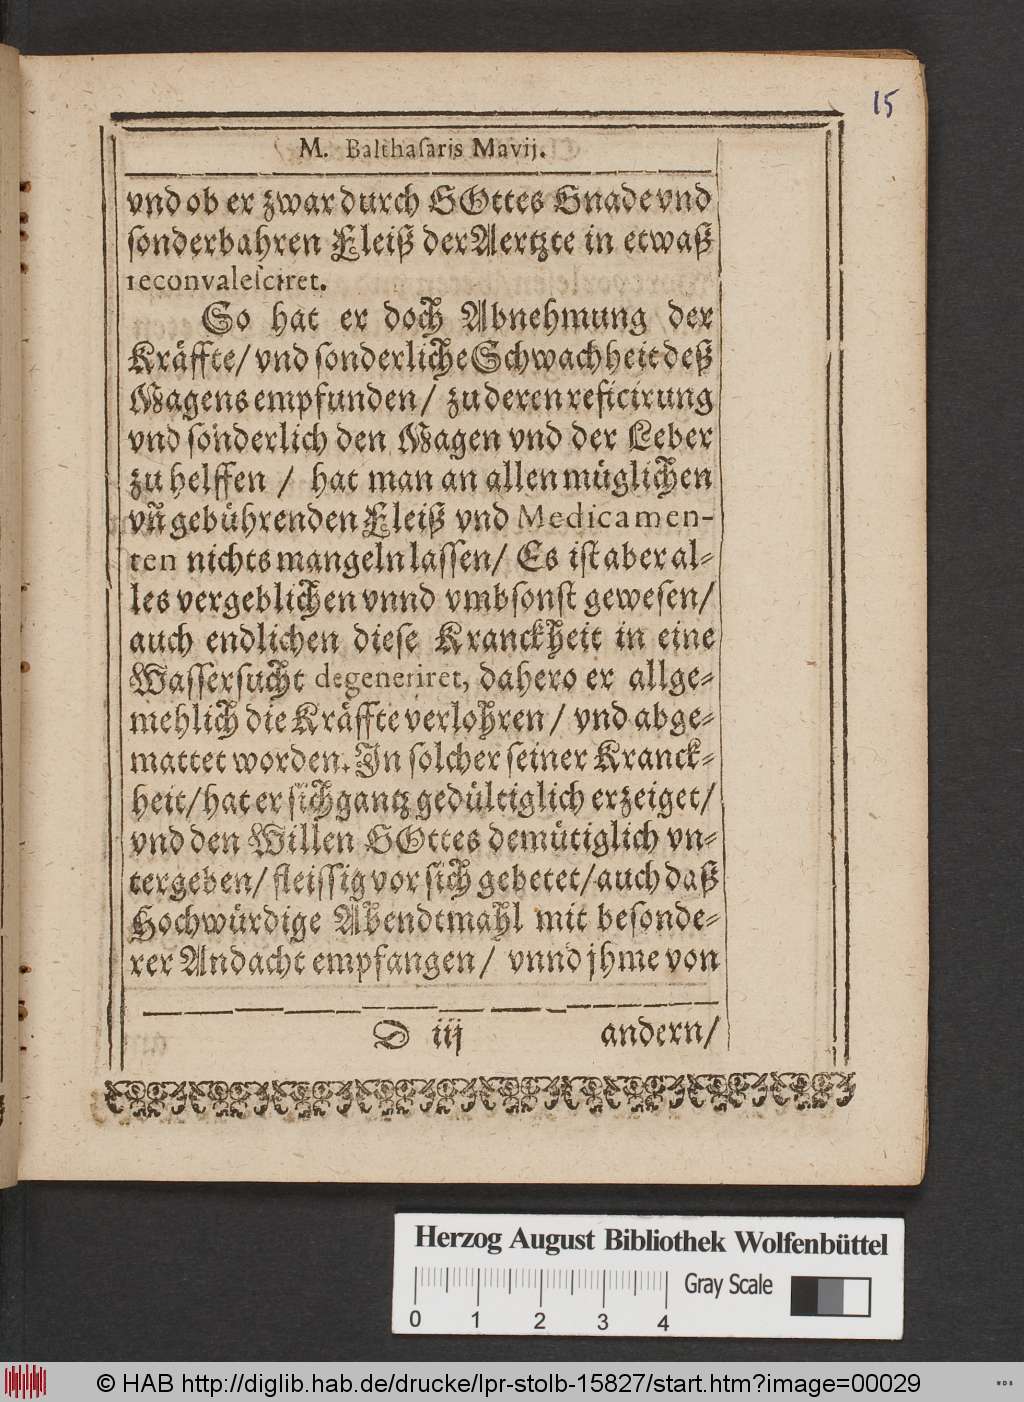 15
M. Balthaſaris Mavij.
vnd ob er zwar durch GOttes Gnade vnd
sonderbahren Fleiß der Aertzte in etwaß
reconvaleſciret.
So hat er doch Abnehmung der
Kräffte/ vnd sonderliche Schwachheit deß
Magens empfunden/ zu deren reficirung
vnd sonderlich den Magen vnd der Leber
zu helffen / hat man an allen müglichen
vñ gebührenden Fleiß vnd Medicamen-
ten nichts mangeln lassen/ Es ist aber al-
les vergeblichen vnnd vmbsonst gewesen/
auch endlichen diese Kranckheit in eine
Wassersucht degeneriret, dahero er allge-
mehlich die Kräffte verlohren/ vnd abge-
mattet worden. In solcher seiner Kranck-
heit/ hat er sich gantz gedültiglich erzeiget/
vnd den Willen GOttes demütiglich vn-
tergeben/ fleissig vor sich gebetet/ auch daß
Hochwürdige Abendtmahl mit besonde-
rer Andacht empfangen/ vnnd jhme von
D iij andern/
Herzog August Bibliothek Wolfenbüttel
0 1 2 3 4 Gray Scale
© HAB http://diglib.hab.de/drucke/lpr-stolb-15827/start.htm?image=00029